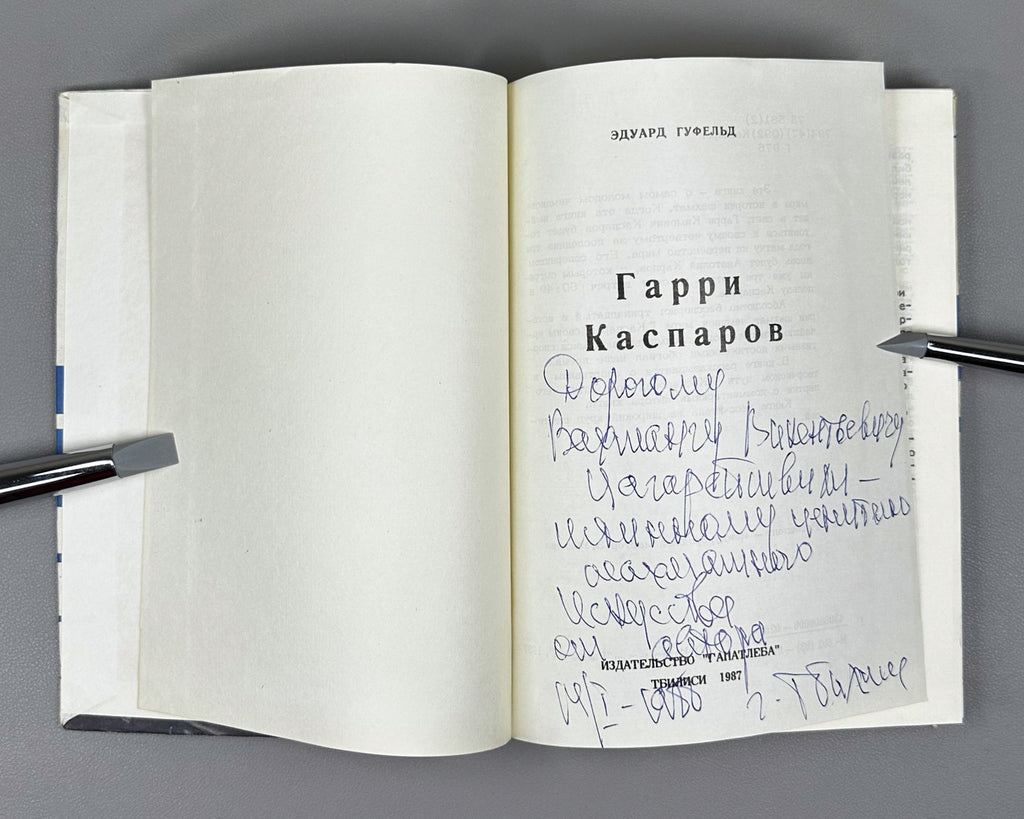 ЭДУАРД ГУФЕЛЬД
Гарри
Каспаров
Дорогому
Вахтангу Викентьевичу
Цагарейшвили –
истинному ценителю
шахматного
искусства
от автора
ИЗДАТЕЛЬСТВО "ГАНАТЛЕБА"
ТБИЛИСИ 1987
г. Тбилиси